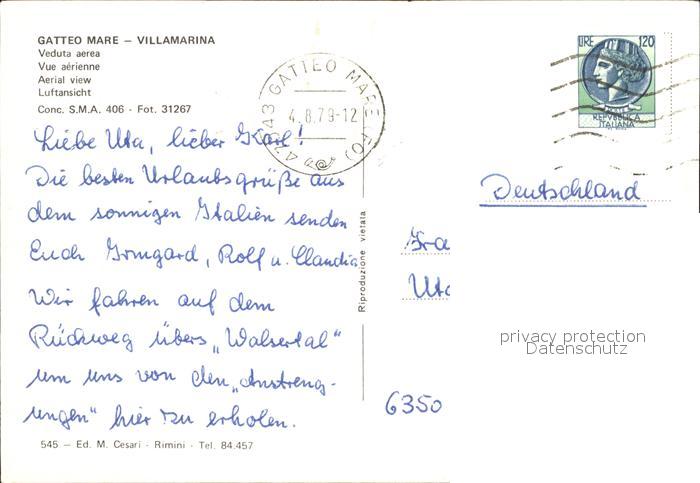 GATTEO MARE – VILLAMARINA
Veduta aerea
Vue aérienne
Aerial view
Luftansicht
Conc. S.M.A. 406 - Fot. 31267
47043 GATTEO MARE (FO)
4.8.79-12
LIRE 120
REPVBBLICA
ITALIANA
Liebe Uta, lieber Karl!
Die besten Urlaubsgrüße aus
dem sonnigen Italien senden
Euch Irmgard, Rolf u. Claudia
Wir fahren auf dem
Rückweg übers „Walsertal"
um uns von den „Anstreng-
ungen" hier zu erholen.
545 – Ed. M. Cesari - Rimini - Tel. 84.457
Riproduzione vietata
Deutschland
Fra
Uta
6350
privacy protection
Datenschutz